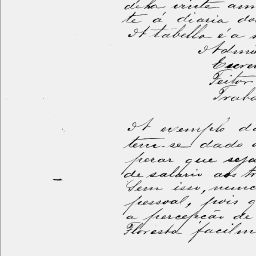 vinte am
te á diaria do
A tabella é a
Admi
Escre
Feitor
Traba
A exemplo d
tem-se dado
porar que seja
de salario aos tr
Sem isso, nunc
pessoal, pois q
a percepção de
Floresta facilm